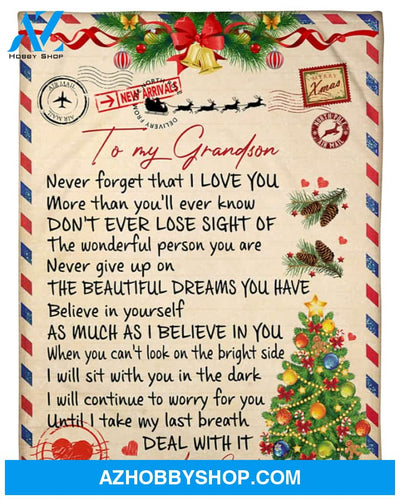 AZ
HOBBY SHOP
AIR MAIL
AIR MAIL
NEW ARRIVALS
DELIVERY FROM NORTH
MERRY
Xmas
NORTH POLE
AIR MAIL
To my Grandson
Never forget that I LOVE YOU
More than you'll ever know
DON'T EVER LOSE SIGHT OF
The wonderful person you are
Never give up on
THE BEAUTIFUL DREAMS YOU HAVE
Believe in yourself
AS MUCH AS I BELIEVE IN YOU
When you can't look on the bright side
I will sit with you in the dark
I will continue to worry for you
Until I take my last breath
DEAL WITH IT
AZHOBBYSHOP.COM